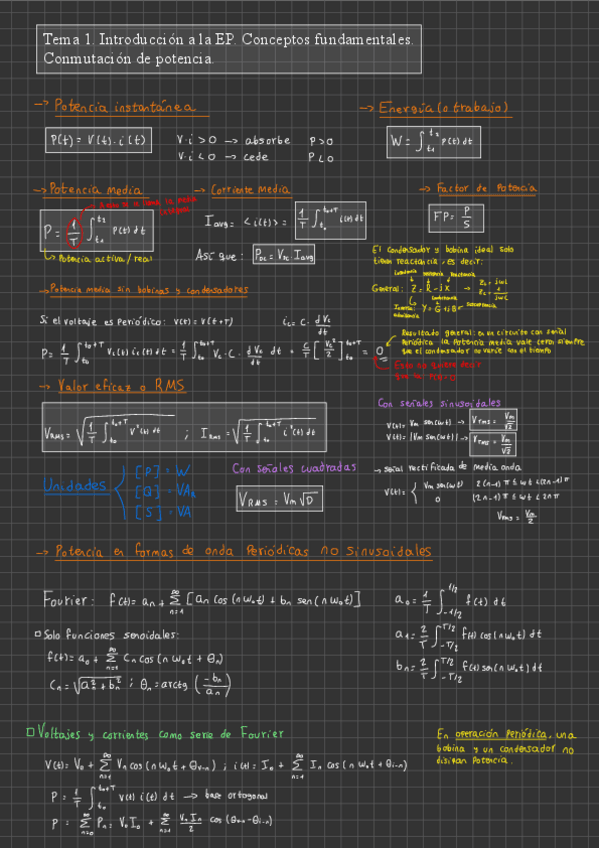 Tema 1. Introducción a la EP. Conceptos fundamentales.
Conmutación de potencia.
→ Potencia instantánea
P(t) = V(t) · i(t)
V·i > 0 → absorbe P>0
V·i < 0 → cede P<0
→ Energía (o trabajo)
W = ∫_{t1}^{t2} P(t) dt
→ Potencia media
P = 1/T ∫_{t1}^{t2} P(t) dt
Potencia activa/real
→ Corriente Media
I_avg = <i(t)> = 1/T ∫_{t0}^{t0+T} i(t) dt
Así que: P_DC = V_DC · I_avg
→ Factor de Potencia
FP = P/S
El condensador y bobina ideal solo
tienen reactancia, es decir:
General: Z = R - jX
Y = G + jB
→ Potencia media sin bobinas y condensadores
Si el voltaje es Periódico: V(t) = V(t+T)
i_c = C · dV_c/dt
P = 1/T ∫_{t0}^{t0+T} V_c(t) i_c(t) dt = 1/T ∫_{t0}^{t0+T} V_c · C · dV_c/dt dt = C/T [V_c²/2]_{t0}^{t0+T} = 0
Resultado general: en un circuito con señal
Periódica la Potencia media vale cero siempre
que el condensador no varíe con el tiempo
Esto no quiere decir
→ Valor eficaz o RMS
V_RMS = √(1/T ∫_{t0}^{t0+T} V²(t) dt) ; I_RMS = √(1/T ∫_{t0}^{t0+T} i²(t) dt)
Con señales sinusoidales
V(t) = Vm sen(ωt) → V_rms = Vm/√2
V(t) = |Vm sen(ωt)| → V_rms = Vm/√2
Unidades
[P] = W
[Q] = VA_R
[S] = VA
Con señales cuadradas
V_RMS = Vm√D
→ Señal rectificada de media onda
V(t) = { Vm sen(ωt) 2(n-1)π ≤ ωt < (2n-1)π
0 (2n-1)π ≤ ωt < 2nπ
V_rms = Vm/2
→ Potencia en formas de onda Periódicas no sinusoidales
Fourier: f(t) = a_n + ∑_{n=1}^{∞} [a_n cos(nω₀t) + b_n sen(nω₀t)]
a₀ = 1/T ∫_{-T/2}^{T/2} f(t) dt
a₁ = 2/T ∫_{-T/2}^{T/2} f(t) cos(nω₀t) dt
b_n = 2/T ∫_{-T/2}^{T/2} f(t) sen(nω₀t) dt
Solo funciones senoidales:
f(t) = a₀ + ∑_{n=1}^{∞} C_n cos(nω₀t + θ_n)
C_n = √(a_n² + b_n²) ; θ_n = arctg(-b_n/a_n)
Voltajes y corrientes como serie de Fourier
V(t) = V₀ + ∑_{n=1}^{∞} V_n cos(nω₀t + θ_{v-n}) ; i(t) = I₀ + ∑_{n=1}^{∞} I_n cos(nω₀t + θ_{i-n})
P = 1/T ∫_{t0}^{t0+T} V(t) i(t) dt → base ortogonal
P = ∑_{n=0}^{∞} P_n = V₀I₀ + ∑_{n=1}^{∞} V_nI_n/2 cos(θ_{v-n} - θ_{i-n})
En operación Periódica, una
bobina y un condensador no
disipan Potencia.